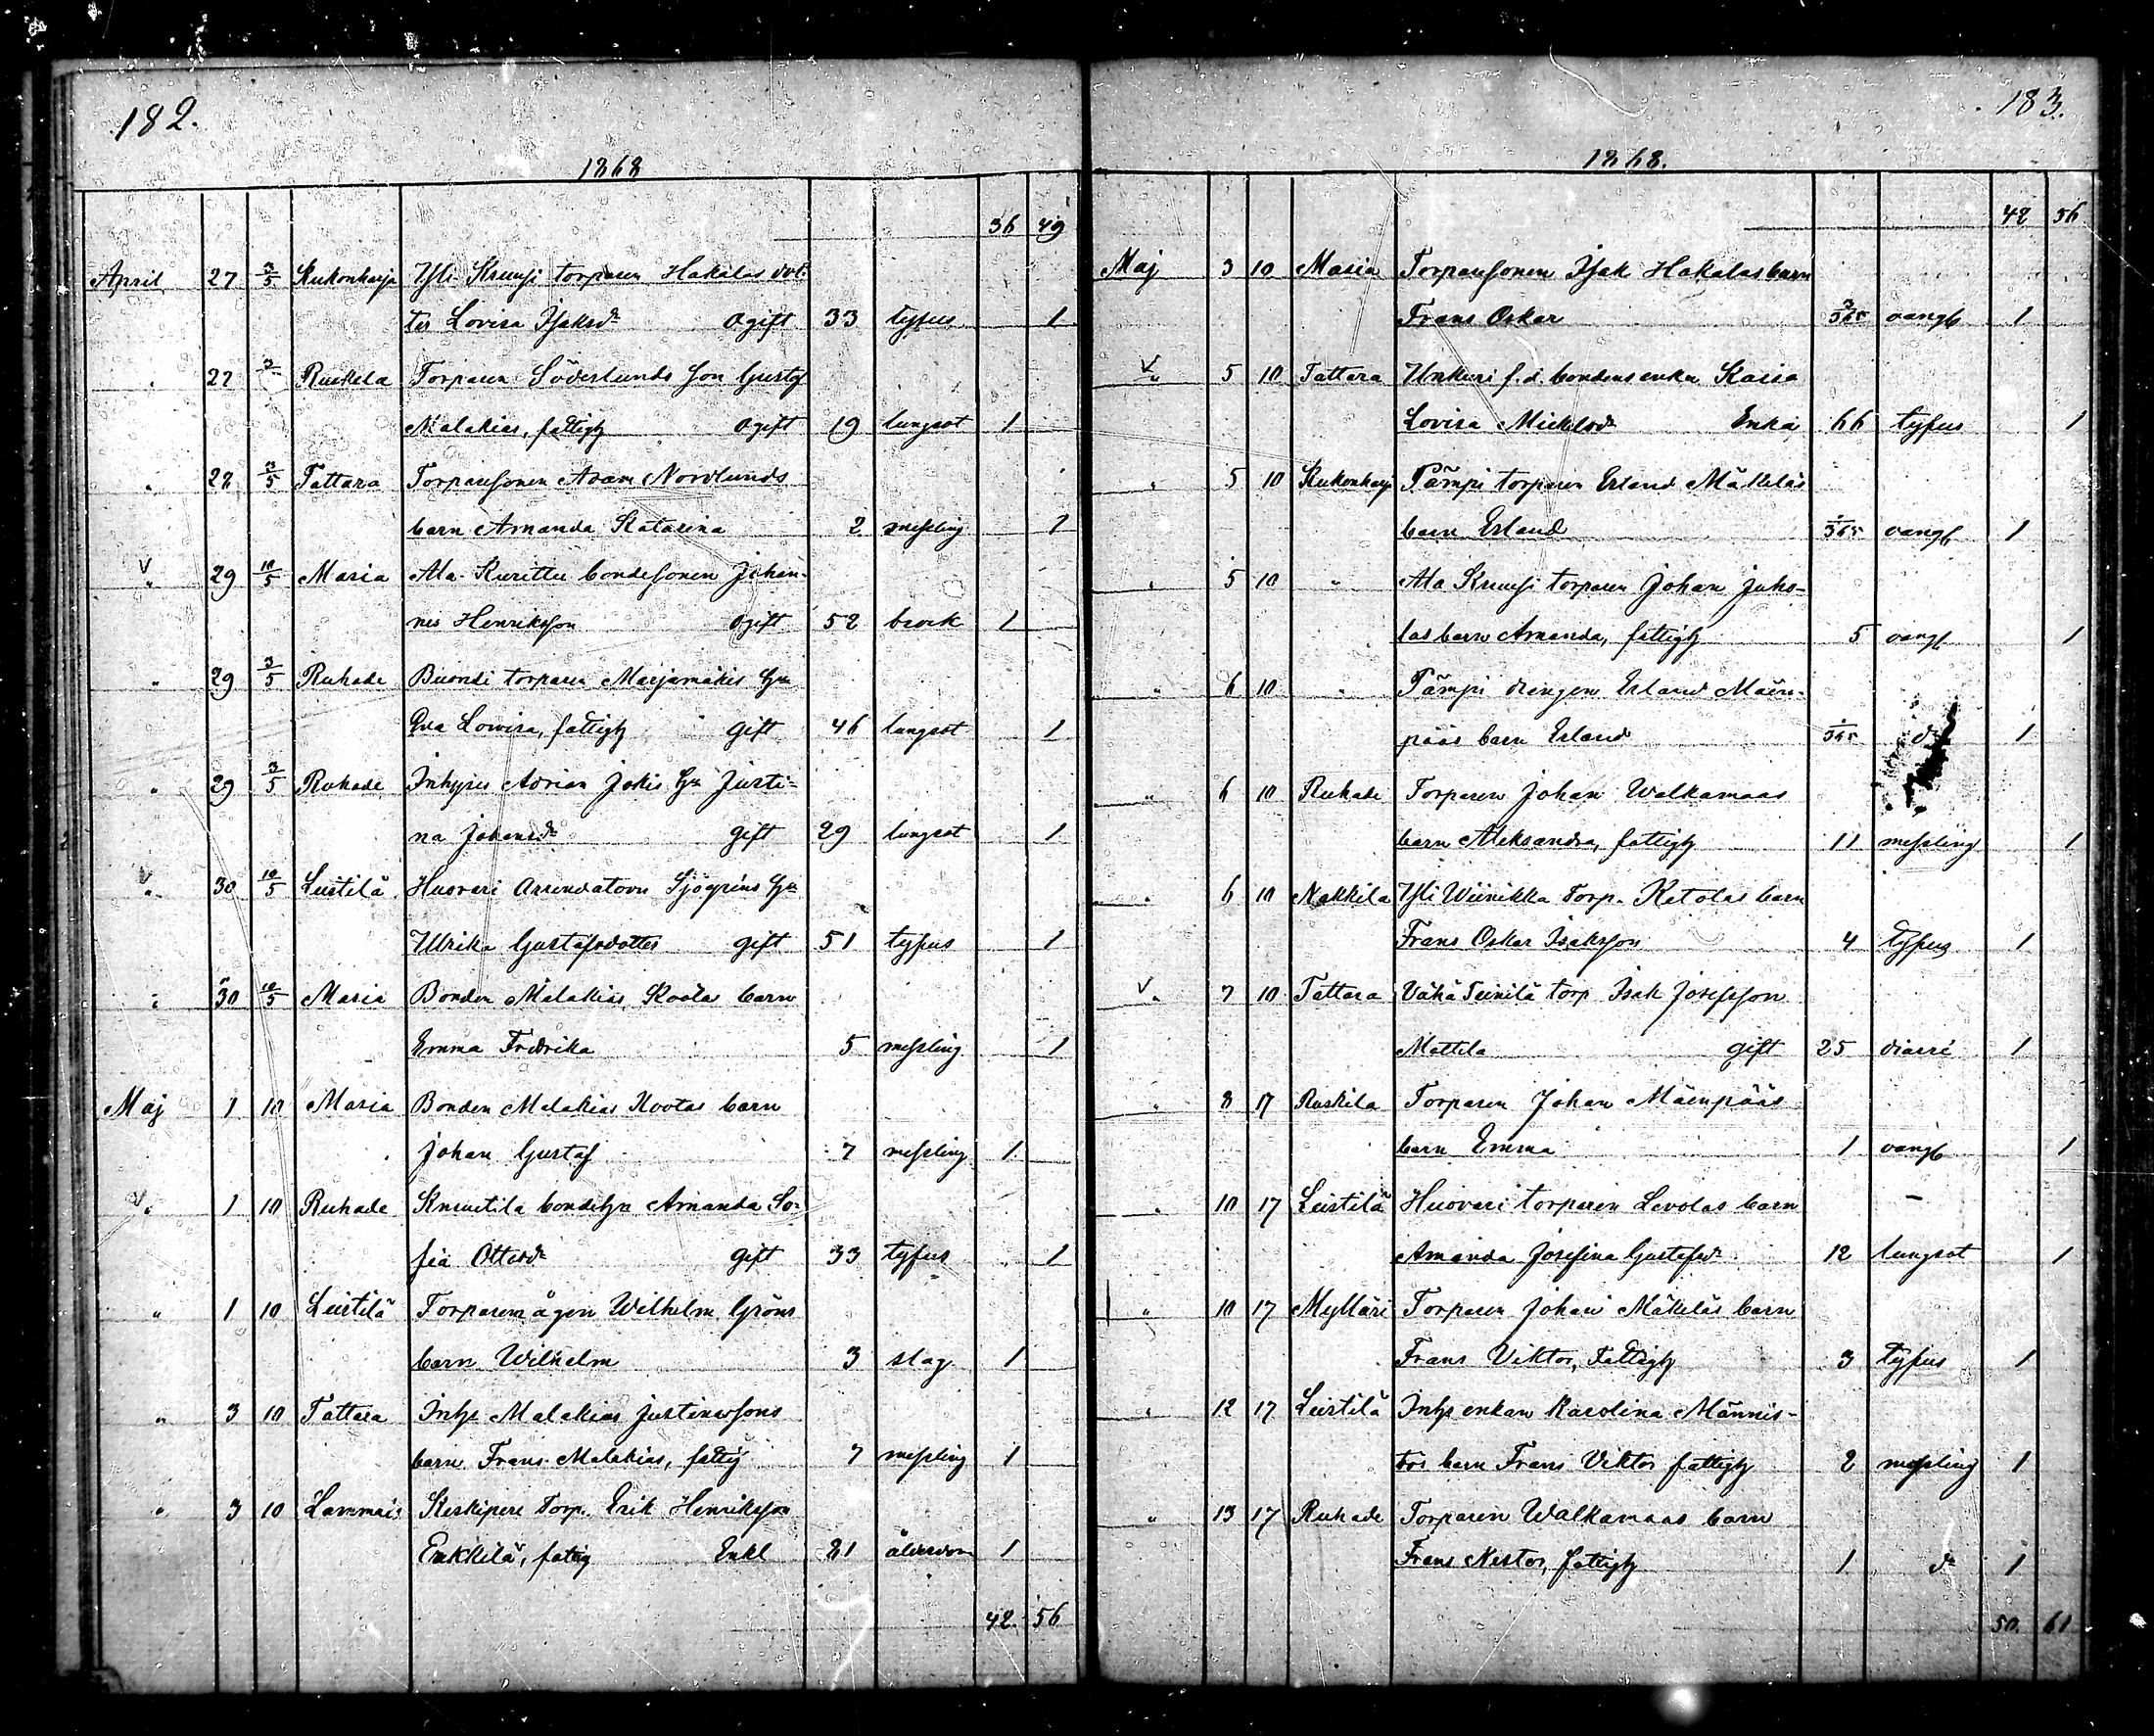 182.
1868
36 49
April 27 3/5 Kukonharja Yli Krunsi torparen Hakalas dot-
ter Lovisa Isaksdr Ogift 33 tyfus 1
" 27 3/5 Ruskela Torparen Söderlunds son Gustaf
Malakias, fattigh Ogift 19 lungsot 1
" 28 3/5 Tattara Torparesonen Adam Nordlunds
barn Amanda Katarina 2 messling 1
V " 29 10/5 Maria Ala-Kurittu bondesonen Johan-
nes Henriksson Ogift 52 brock 1
" 29 3/5 Ruhade Buondi torparen Marjamäkis Hu
Eva Lowisa, fattigh gift 46 lungsot 1
" 29 3/5 Ruhade Inhyses Adrian Jokis Hu Justi-
na Johansdr gift 29 lungsot 1
V " 30 10/5 Leistilä Huovari Arrendatorn Sjögrens Hu
Ulrika Gustafsdotter gift 51 tyfus 1
" 30 10/5 Maria Bonden Malakias Kootas barn
Emma Fredrika 5 messling 1
Maj 1 10 Maria Bonden Malakias Kootas barn
Johan Gustaf 7 messling 1
V " 1 10 Ruhade Knuutila bondehn Amanda So-
fia Ottosdr gift 33 tyfus 1
" 1 10 Leistilä Torparemågen Wilhelm Gröns
barn Wilhelm 3 slag 1
" 3 10 Tattara Inhs Malakias Justinussons
barn Frans Malakias, fattig 7 messling 1
" 3 10 Lammais Keskipere Torp. Erik Henriksson
Erkkilä, fattig Enkl 81 ålderdom 1
42. 56
183.
1868.
42 56
Maj 3 10 Maria Torparesonen Isak Hakalas barn
Frans Oskar 3/365 oangf 1
V " 5 10 Tattara Unkuri f.d. bondens enka Kaisa
Lovisa Mickelsdr Enka 66 tyfus 1
" 5 10 Kukonharja Pämpi torparen Erland Mäkeläs
barn Erland /365 oangf 1
" 5 10 " Ala Krunsi torparen Johan Juho-
las barn Amanda, fattigh 5 oangf 1
" 6 10 " Pämpi drengen Erland Mäen-
pääs barn Erland /365 do 1
" 6 10 Ruhade Torparen Johan Walkamaas
barn Aleksandra, fattigh 11 messling 1
" 6 10 Nakkila Yli Wiinikka Torp. Ketolas barn
Frans Oskar Isaksson 4 Tyfus 1
V " 7 10 Tattara Vähä Teinilä torp Isak Josefsson
Mattila gift 25 diarré 1
" 8 17 Ruskila Torparen Johan Mäenpääs
barn Emma 1 oangf 1
" 10 17 Leistilä Huovari torparen Levolas barn
Amanda Josefina Gustafsdr 12 lungsot 1
" 10 17 Mylläri Torparen Johan Mäkeläs barn
Frans Viktor, Fattigh 3 Tyfus 1
" 12 17 Leistilä Inhs enkan Karolina Männis-
tös barn Frans Viktor fattigh 2 messling 1
" 13 17 Ruhade Torparen Walkamaas barn
Frans Nestor, fattigh 1 do 1
50. 61